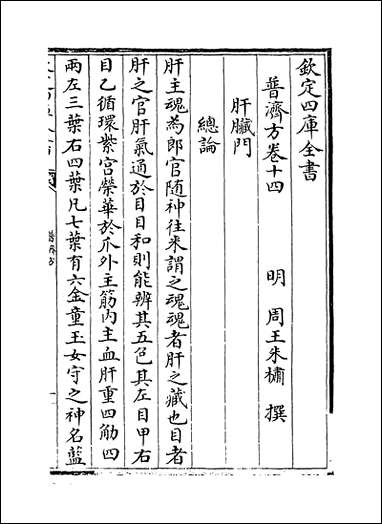 欽定四庫全書
普濟方卷十四
明 周王朱橚 撰
肝臟門
總論
肝主魂為郎官隨神往来謂之魂魂者肝之藏也目者
肝之官肝氣通於目目和則能辨其五色其左目甲右
目乙循環紫宫榮華於爪外主筋内主血肝重四觔四
兩左三葉右四葉凡七葉有六金童玉女守之神名藍